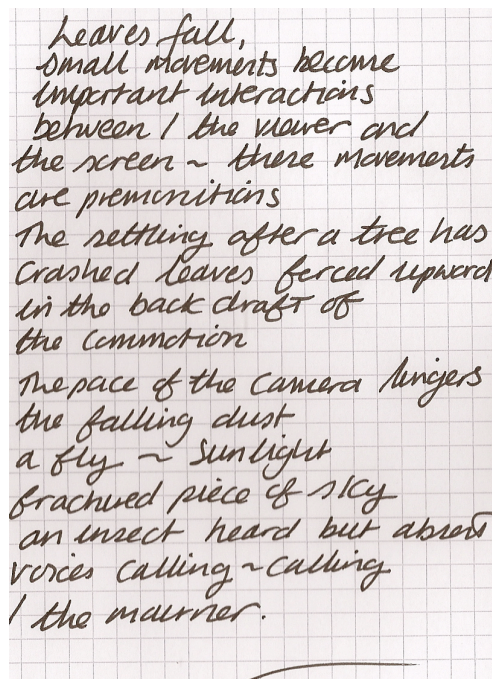 Leaves fall,
small movements become
important interactions
between / the viewer and
the screen ~ these movements
are premonitions
The settling after a tree has
Crashed leaves forced upward
in the back draft of
the Commotion
The pace of the Camera lingers
the falling dust
a fly ~ Sunlight
frachured piece of sky
an insect heard but absent
voices calling ~ calling
/ the mourner.